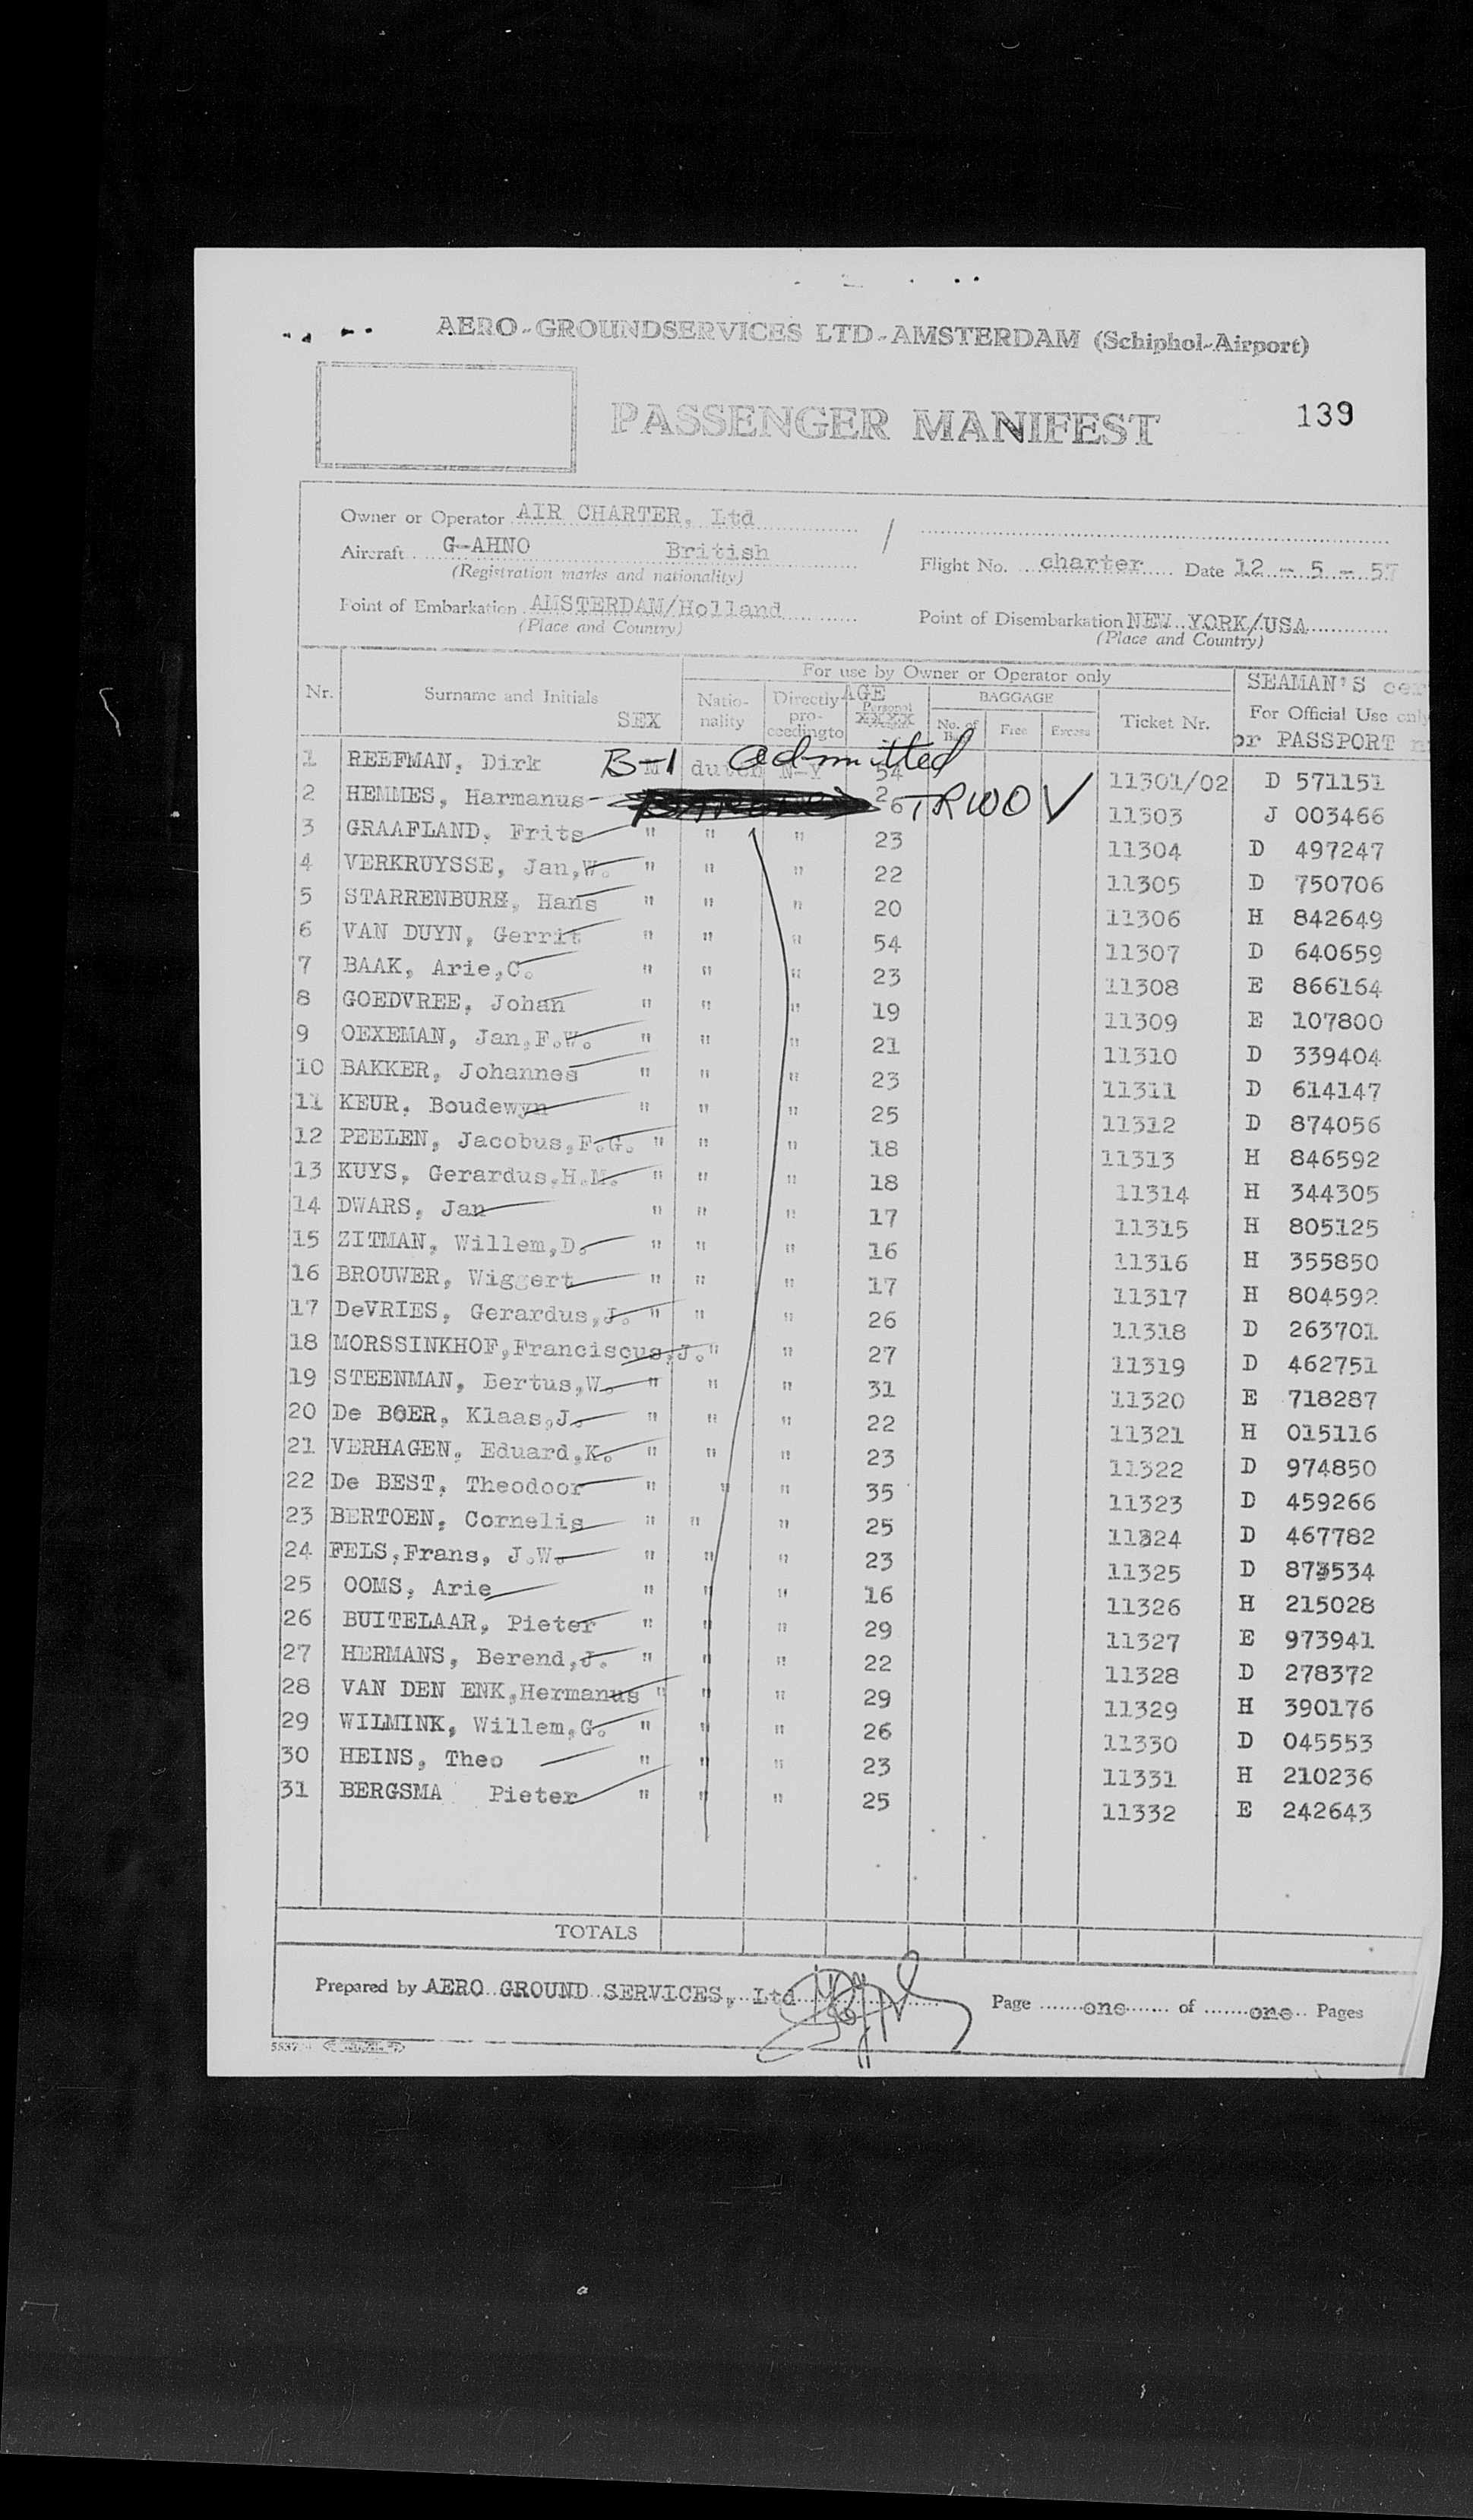 AERO-GROUNDSERVICES LTD-AMSTERDAM (Schiphol-Airport)
PASSENGER MANIFEST 139
Owner or Operator AIR CHARTER, Ltd /
Aircraft G-AHNO British Flight No. charter Date 12 - 5 - 57
(Registration marks and nationality)
Point of Embarkation AMSTERDAM/Holland Point of Disembarkation NEW YORK/USA
(Place and Country) (Place and Country)
For use by Owner or Operator only SEAMAN'S cer
Nr. Surname and Initials SEX Natio-nality Directly pro-ceeding to AGE Personal XXXX BAGGAGE No. of Free Excess Ticket Nr. For Official Use only
or PASSPORT n
1 REEFMAN, Dirk B-1 M dutch admitted N-Y 54 11301/02 D 571151
2 HEMMES, Harmanus 26 TRWOV 11303 J 003466
3 GRAAFLAND, Frits " " " 23 11304 D 497247
4 VERKRUYSSE, Jan,W. " " " 22 11305 D 750706
5 STARRENBURG, Hans " " " 20 11306 H 842649
6 VAN DUYN, Gerrit " " " 54 11307 D 640659
7 BAAK, Arie,C. " " " 23 11308 E 866164
8 GOEDVREE, Johan " " " 19 11309 E 107800
9 OEXEMAN, Jan,F.W. " " " 21 11310 D 339404
10 BAKKER, Johannes " " " 23 11311 D 614147
11 KEUR, Boudewyn " " " 25 11312 D 874056
12 PEELEN, Jacobus,F.G. " " " 18 11313 H 846592
13 KUYS, Gerardus,H.M. " " " 18 11314 H 344305
14 DWARS, Jan " " " 17 11315 H 805125
15 ZITMAN, Willem,D. " " " 16 11316 H 355850
16 BROUWER, Wiggert " " " 17 11317 H 804592
17 DeVRIES, Gerardus,J. " " " 26 11318 D 263701
18 MORSSINKHOF,Franciscus,J. " " 27 11319 D 462751
19 STEENMAN, Bertus,W. " " " 31 11320 E 718287
20 De BOER, Klaas,J. " " " 22 11321 H 015116
21 VERHAGEN, Eduard,K. " " " 23 11322 D 974850
22 De BEST, Theodoor " " " 35 11323 D 459266
23 BERTOEN, Cornelis " " " 25 11324 D 467782
24 FELS,Frans, J.W. " " " 23 11325 D 873534
25 OOMS, Arie " " " 16 11326 H 215028
26 BUITELAAR, Pieter " " " 29 11327 E 973941
27 HERMANS, Berend,J. " " " 22 11328 D 278372
28 VAN DEN ENK,Hermanus " " " 29 11329 H 390176
29 WILMINK, Willem,G. " " " 26 11330 D 045553
30 HEINS, Theo " " " 23 11331 H 210236
31 BERGSMA Pieter " " " 25 11332 E 242643
TOTALS
Prepared by AERO GROUND SERVICES, Ltd Page one of one Pages